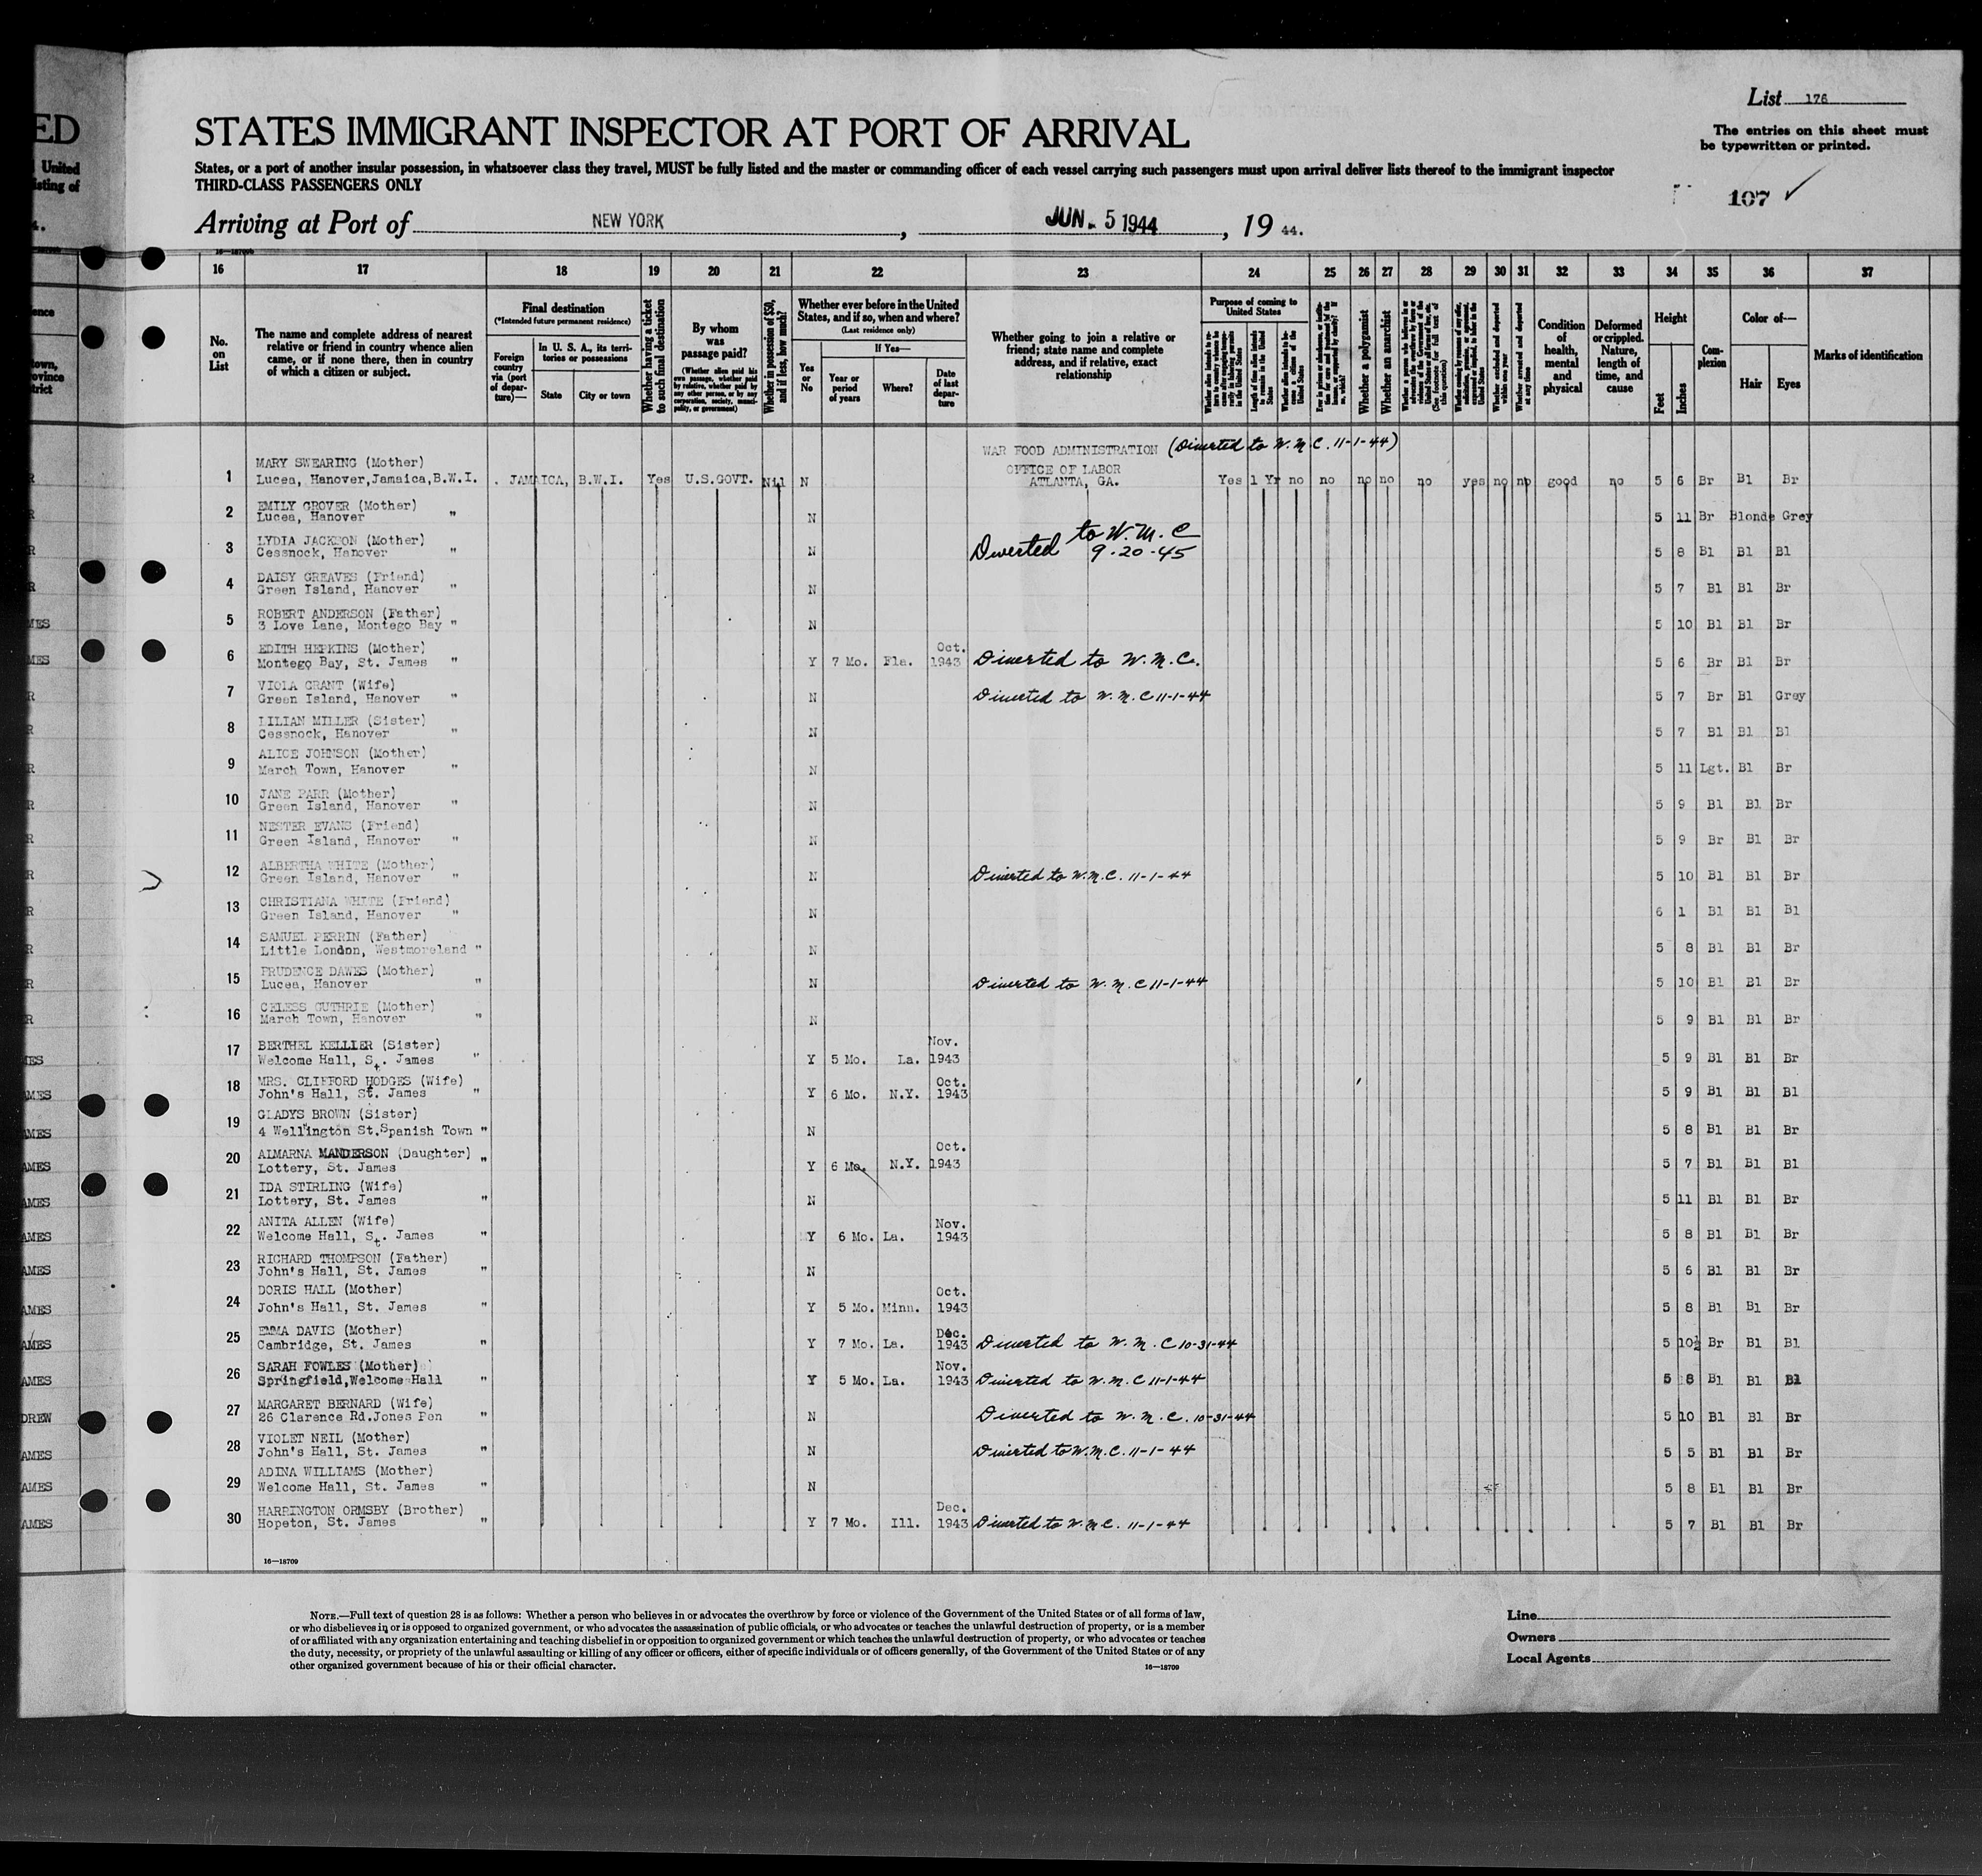 ED
United
isting of
List 176
The entries on this sheet must
be typewritten or printed.
STATES IMMIGRANT INSPECTOR AT PORT OF ARRIVAL
States, or a port of another insular possession, in whatsoever class they travel, MUST be fully listed and the master or commanding officer of each vessel carrying such passengers must upon arrival deliver lists thereof to the immigrant inspector
THIRD-CLASS PASSENGERS ONLY
107 ✓
Arriving at Port of NEW YORK, JUN. 5 1944, 19 44.
16 17 18 19 20 21 22 23 24 25 26 27 28 29 30 31 32 33 34 35 36 37
No. on List
The name and complete address of nearest relative or friend in country whence alien came, or if none there, then in country of which a citizen or subject.
Final destination
(*Intended future permanent residence)
Foreign country via (port of departure)—
In U. S. A., its territories or possessions
State
City or town
Whether having a ticket to such final destination
By whom was passage paid?
(Whether alien paid his own passage, whether paid by relative, whether paid by any other person, or by any corporation, society, municipality, or government)
Whether in possession of $50, and if less, how much?
Whether ever before in the United States, and if so, when and where?
(Last residence only)
Yes or No
If Yes—
Year or period of years
Where?
Date of last departure
Whether going to join a relative or friend; state name and complete address, and if relative, exact relationship
Purpose of coming to United States
Length of time alien intends to remain in the United States
Whether a polygamist
Whether an anarchist
(See footnote for full text of this question)
Whether excluded and deported within one year
Whether arrested and deported at any time
Condition of health, mental and physical
Deformed or crippled. Nature, length of time, and cause
Height
Feet
Inches
Complexion
Color of—
Hair
Eyes
Marks of identification
WAR FOOD ADMINISTRATION (Diverted to W.M.C. 11-1-44)
OFFICE OF LABOR
ATLANTA, GA.
1 MARY SWEARING (Mother)
Lucea, Hanover, Jamaica, B.W.I. . JAMAICA, B.W.I. Yes U.S.GOVT. Nil N Yes 1 Yr no no no no no yes no no good no 5 6 Br Bl Br
2 EMILY GROVER (Mother)
Lucea, Hanover " N 5 11 Br Blonde Grey
3 LYDIA JACKSON (Mother)
Cessnock, Hanover " N Diverted to W.M.C 9-20-45 5 8 Bl Bl Bl
4 DAISY GREAVES (Friend)
Green Island, Hanover " N 5 7 Bl Bl Br
5 ROBERT ANDERSON (Father)
3 Love Lane, Montego Bay " N 5 10 Bl Bl Br
6 EDITH HEPKINS (Mother)
Montego Bay, St. James " Y 7 Mo. Fla. Oct. 1943 Diverted to W.M.C. 5 6 Br Bl Br
7 VIOLA GRANT (Wife)
Green Island, Hanover " N Diverted to W.M.C 11-1-44 5 7 Br Bl Grey
8 LILIAN MILLER (Sister)
Cessnock, Hanover " N 5 7 Bl Bl Bl
9 ALICE JOHNSON (Mother)
March Town, Hanover " N 5 11 Lgt. Bl Br
10 JANE PARR (Mother)
Green Island, Hanover " N 5 9 Bl Bl Br
11 NESTER EVANS (Friend)
Green Island, Hanover " N 5 9 Br Bl Br
12 ALBERTHA WHITE (Mother)
Green Island, Hanover " N Diverted to W.M.C. 11-1-44 5 10 Bl Bl Br
13 CHRISTIANA WHITE (Friend)
Green Island, Hanover " N 6 1 Bl Bl Bl
14 SAMUEL PERRIN (Father)
Little London, Westmoreland " N 5 8 Bl Bl Br
15 PRUDENCE DAWES (Mother)
Lucea, Hanover " N Diverted to W.M.C 11-1-44 5 10 Bl Bl Br
16 CELESS GUTHRIE (Mother)
March Town, Hanover " N 5 9 Bl Bl Br
17 BERTHEL KELLIER (Sister)
Welcome Hall, St. James " Y 5 Mo. La. Nov. 1943 5 9 Bl Bl Br
18 MRS. CLIFFORD HODGES (Wife)
John's Hall, St. James " Y 6 Mo. N.Y. Oct. 1943 5 9 Bl Bl Bl
19 GLADYS BROWN (Sister)
4 Wellington St. Spanish Town " N 5 8 Bl Bl Br
20 ALMARNA MANDERSON (Daughter)
Lottery, St. James " Y 6 Mo. N.Y. Oct. 1943 5 7 Bl Bl Bl
21 IDA STIRLING (Wife)
Lottery, St. James " N 5 11 Bl Bl Br
22 ANITA ALLEN (Wife)
Welcome Hall, St. James " Y 6 Mo. La. Nov. 1943 5 8 Bl Bl Br
23 RICHARD THOMPSON (Father)
John's Hall, St. James " N 5 6 Bl Bl Br
24 DORIS HALL (Mother)
John's Hall, St. James " Y 5 Mo. Minn. Oct. 1943 5 8 Bl Bl Br
25 EMMA DAVIS (Mother)
Cambridge, St. James " Y 7 Mo. La. Dec. 1943 Diverted to W.M.C 10-31-44 5 10½ Br Bl Bl
26 SARAH FOWLES (Mother)
Springfield, Welcome Hall " Y 5 Mo. La. Nov. 1943 Diverted to W.M.C 11-1-44 5 8 Bl Bl Bl
27 MARGARET BERNARD (Wife)
26 Clarence Rd. Jones Pen " N Diverted to W.M.C. 10-31-44 5 10 Bl Bl Br
28 VIOLET NEIL (Mother)
John's Hall, St. James " N Diverted to W.M.C. 11-1-44 5 5 Bl Bl Br
29 ADINA WILLIAMS (Mother)
Welcome Hall, St. James " N 5 8 Bl Bl Br
30 HARRINGTON ORMSBY (Brother)
Hopeton, St. James " Y 7 Mo. Ill. Dec. 1943 Diverted to W.M.C. 11-1-44 5 7 Bl Bl Br
16—18709
NOTE.—Full text of question 28 is as follows: Whether a person who believes in or advocates the overthrow by force or violence of the Government of the United States or of all forms of law,
or who disbelieves in or is opposed to organized government, or who advocates the assassination of public officials, or who advocates or teaches the unlawful destruction of property, or is a member
of or affiliated with any organization entertaining and teaching disbelief in or opposition to organized government or which teaches the unlawful destruction of property, or who advocates or teaches
the duty, necessity, or propriety of the unlawful assaulting or killing of any officer or officers, either of specific individuals or of officers generally, of the Government of the United States or of any
other organized government because of his or their official character.
16—18709
Line
Owners
Local Agents